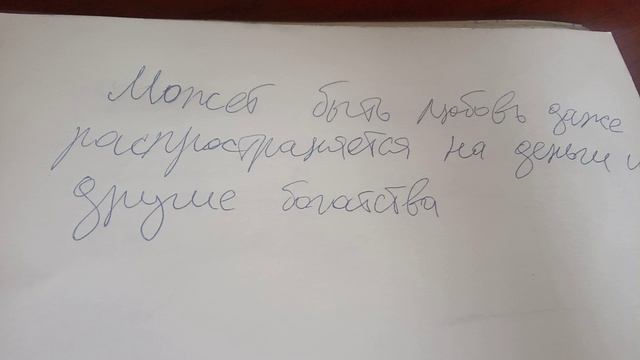 Может быть любовь даже
распространяется на деньги и
другие богатства